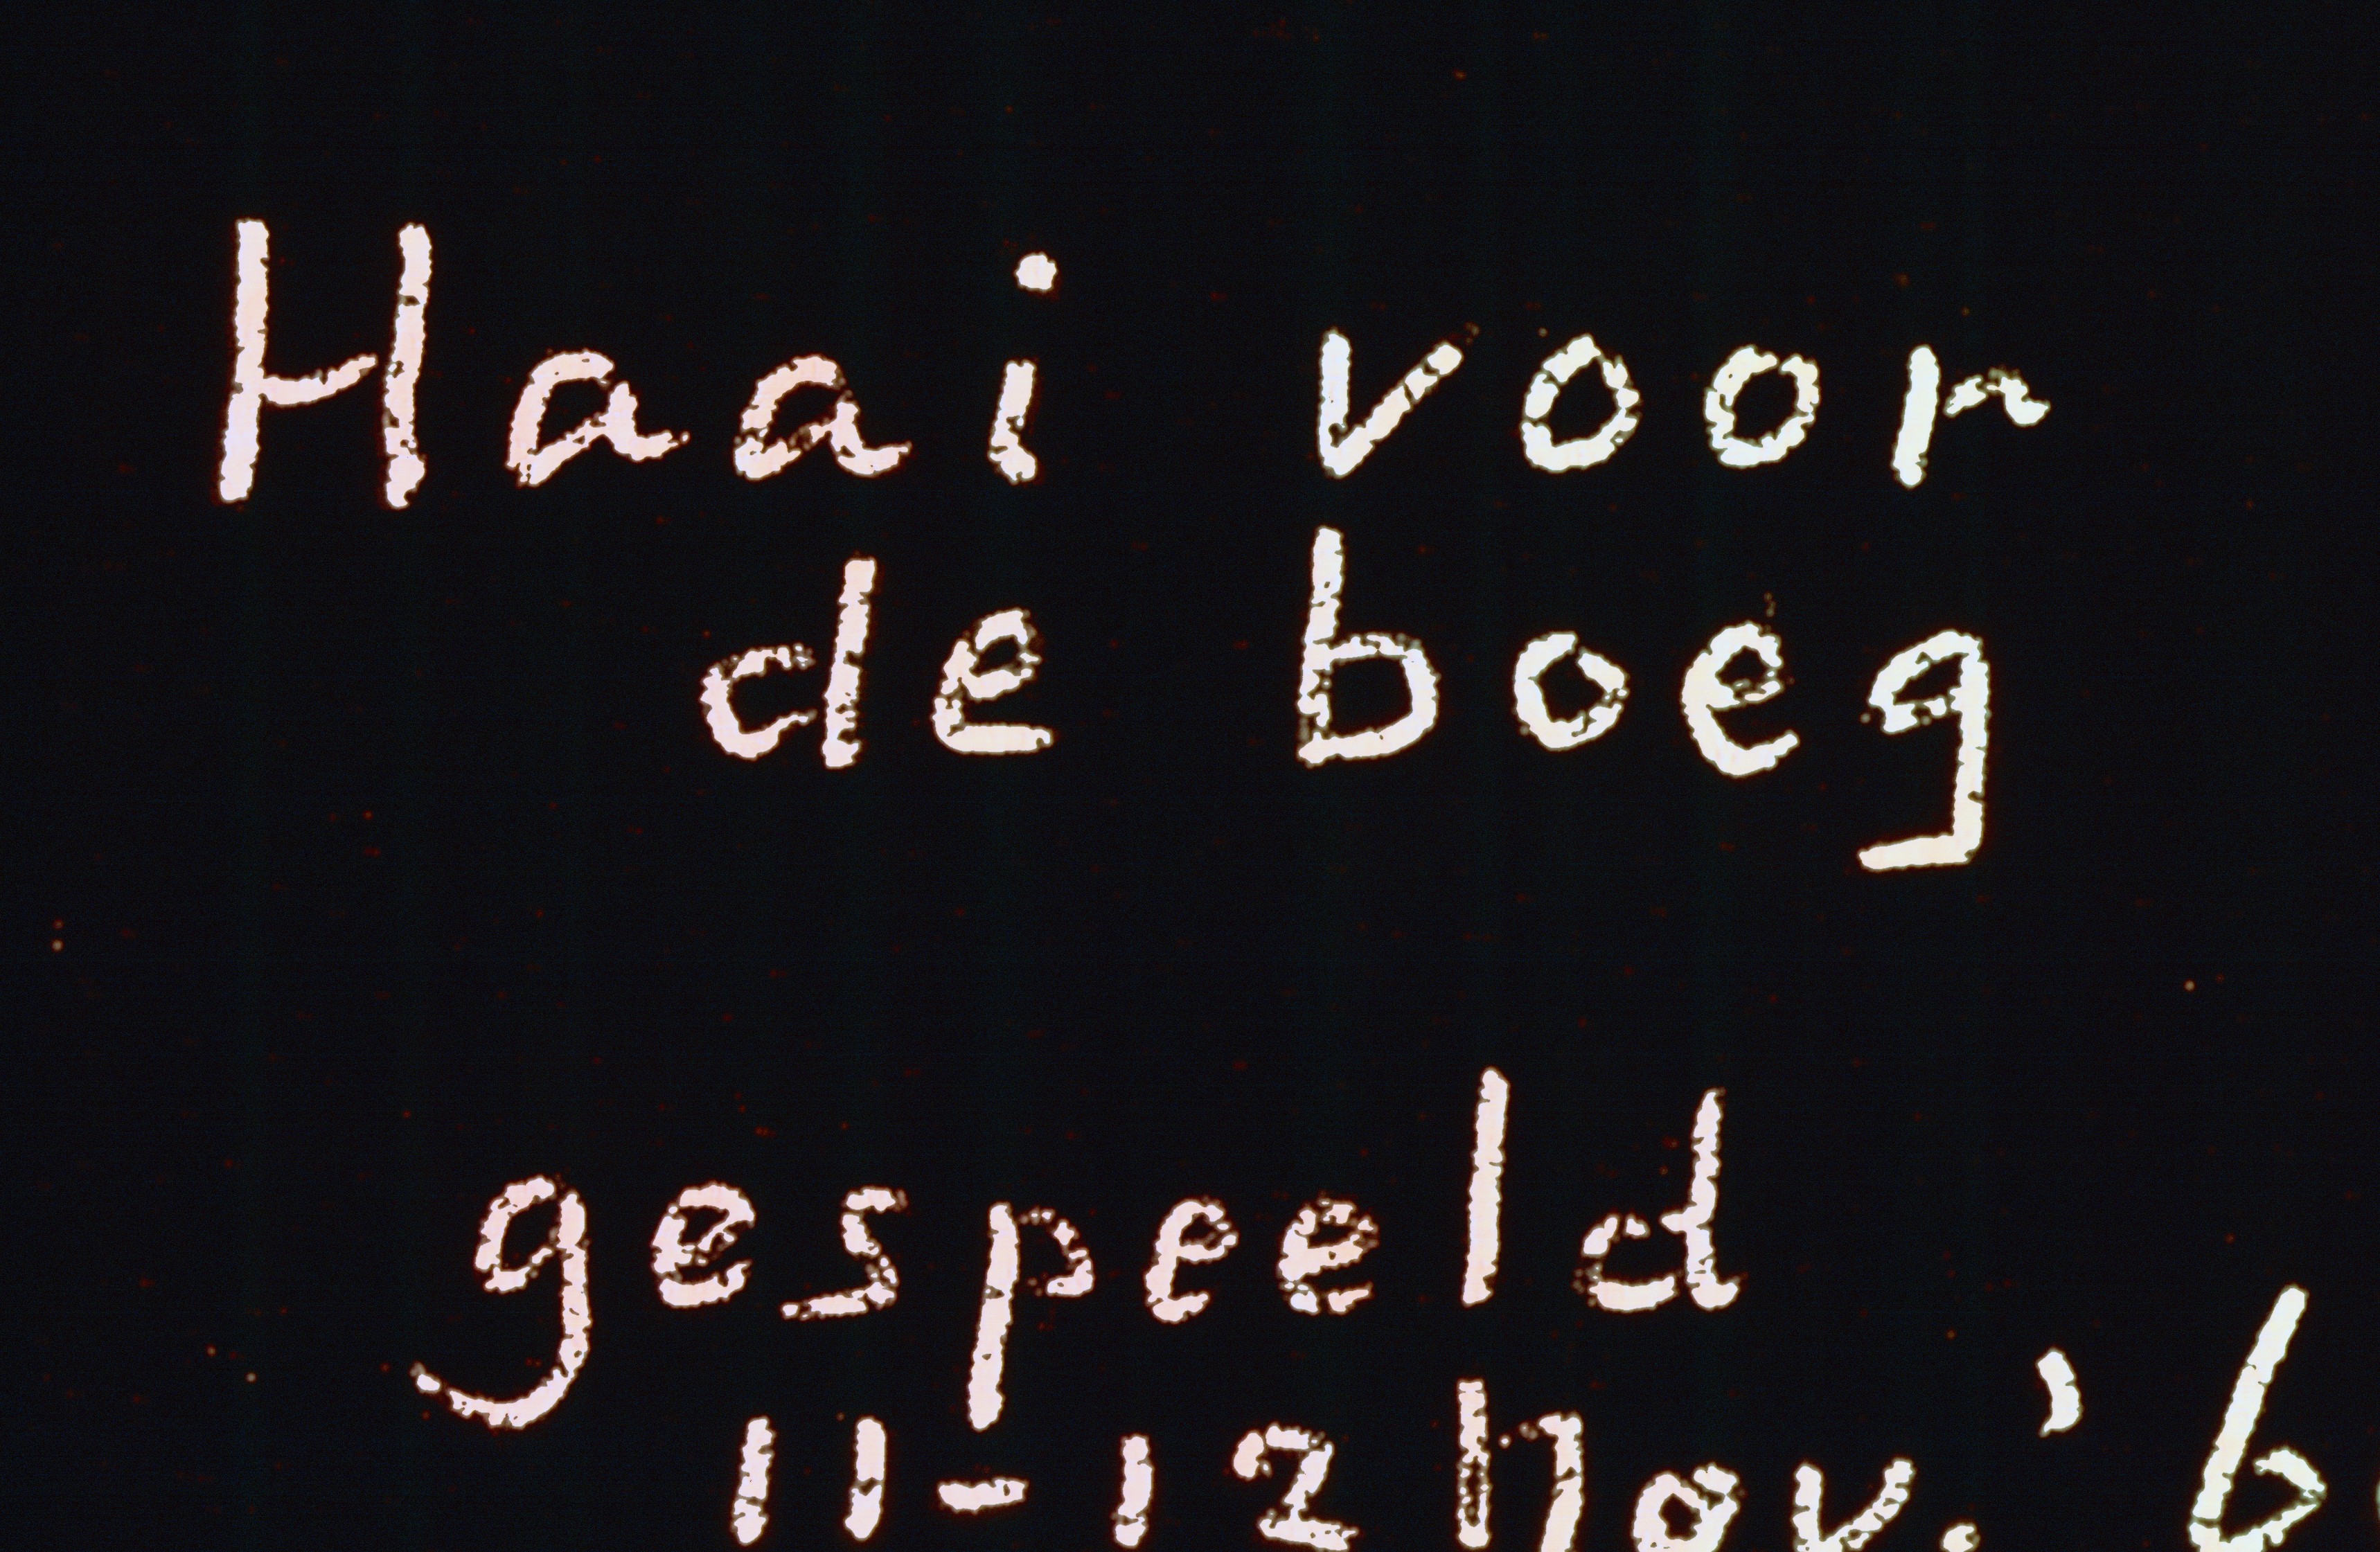 Haai voor
de boeg
gespeeld
11-12 nov. '6